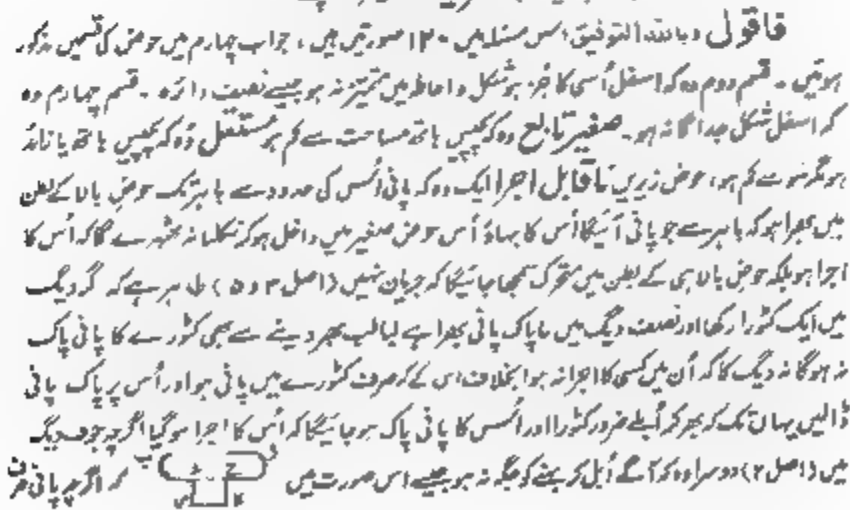 فاقول وباللہ التوفیق اس مسئلہ میں ۱۲۰ صورتیں ہیں، جواب چہارم میں حوض کی قسمیں مذکور
ہوئیں۔ قسم دوم وہ کہ اسفل اُسی کا جُز ہو شکل و احاطہ میں متمیز نہ ہو جیسے نصف دائرہ۔ قسم چہارم وہ
کہ اسفل شکل جداگانہ ہو۔ صغیر تابع وہ کہ پچیس ہاتھ مساحت سے کم ہو مستقل وُہ کہ پچیس ہاتھ یا زائد
ہو مگر سو سے کم ہو، حوض زیریں ناقابل اجرا ایک وہ کہ پانی اُس کی حدود سے باہر تک حوض بالا کے بطن
میں بھرا ہو کہ باہر سے جو پانی آئیگا اُس کا بہاؤ اُس حوض صغیر میں داخل ہو کر نکلنا نہ ٹھہرے گا کہ اُس کا
اجرا ہو بلکہ حوض بالا ہی کے بطن میں متحرک سمجھا جائیگا کہ جریان نہیں (اصل ۴ و ۵) ظاہر ہے کہ گر دیگ
میں ایک کٹورا رکھا اور نصف دیگ میں ناپاک پانی بھرا ہے لبالب بھر دینے سے بھی کٹورے کا پانی پاک
نہ ہوگا نہ دیگ کا کہ اُن میں کسی کا اجرا نہ ہوا بخلاف اس کے کہ صرف کٹورے میں پانی ہو اور اُس پر پاک پانی
ڈالیں یہاں تک کہ بھر کر اُبلے ضرور کٹورا اور اُس کا پانی پاک ہو جائیگا کہ اُس کا اجرا ہوگیا اگرچہ جوف دیگ
میں (اصل ۲) دوسرا وہ کہ آگے اُبل کر بہنے کو جگہ نہ ہو جیسے اس صورت میں کہ اگرچہ پانی صرف